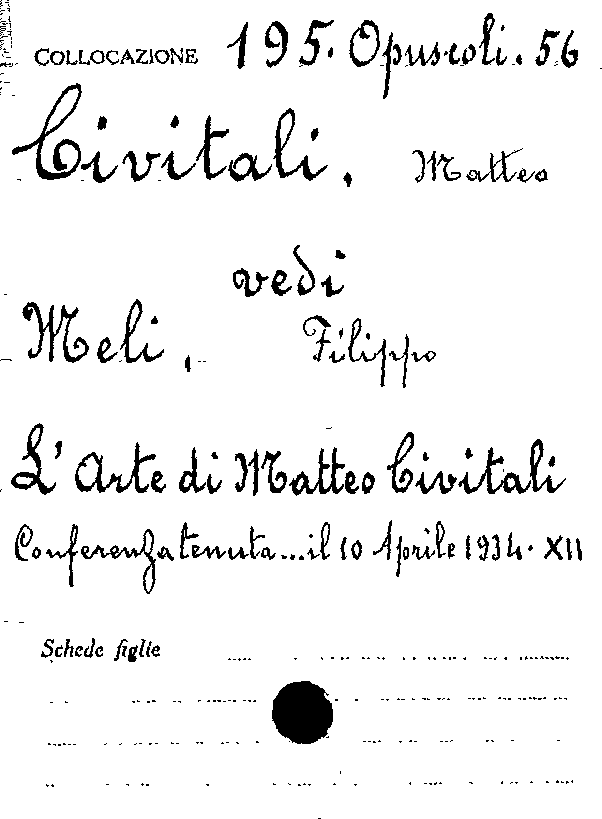 COLLOCAZIONE 195. Opuscoli. 56
Civitali, Matteo
vedi
Meli, Filippo
L'Arte di Matteo Civitali
Conferenza tenuta...il 10 Aprile 1934. XII
Schede figlie